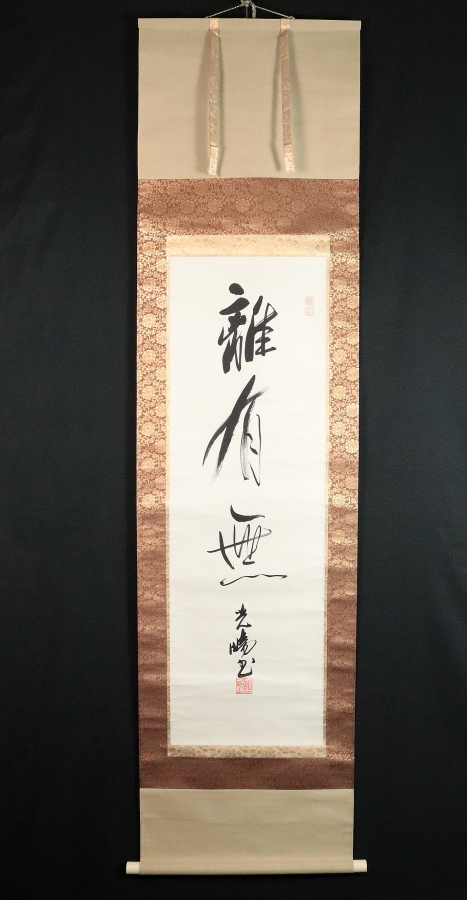 離有無
光暁書